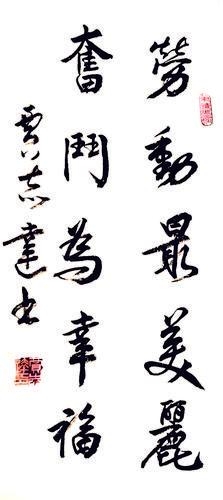 勞動最美麗
奮鬥為幸福
賈志達書